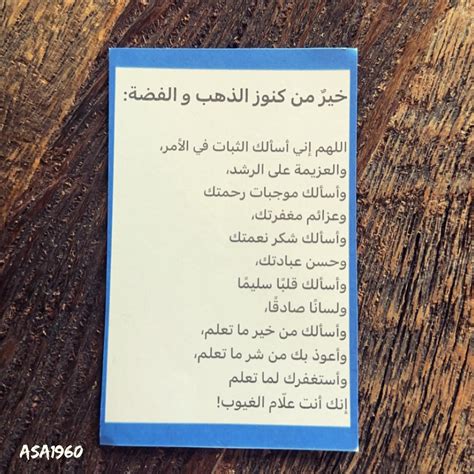 خيرٌ من كنوز الذهب و الفضة:
اللهم إني أسألك الثبات في الأمر،
والعزيمة على الرشد،
وأسألك موجبات رحمتك
وعزائم مغفرتك،
وأسألك شكر نعمتك
وحسن عبادتك،
وأسألك قلبًا سليمًا
ولسانًا صادقًا،
وأسألك من خير ما تعلم،
وأعوذ بك من شر ما تعلم،
وأستغفرك لما تعلم
إنك أنت علّام الغيوب!
ASA1960